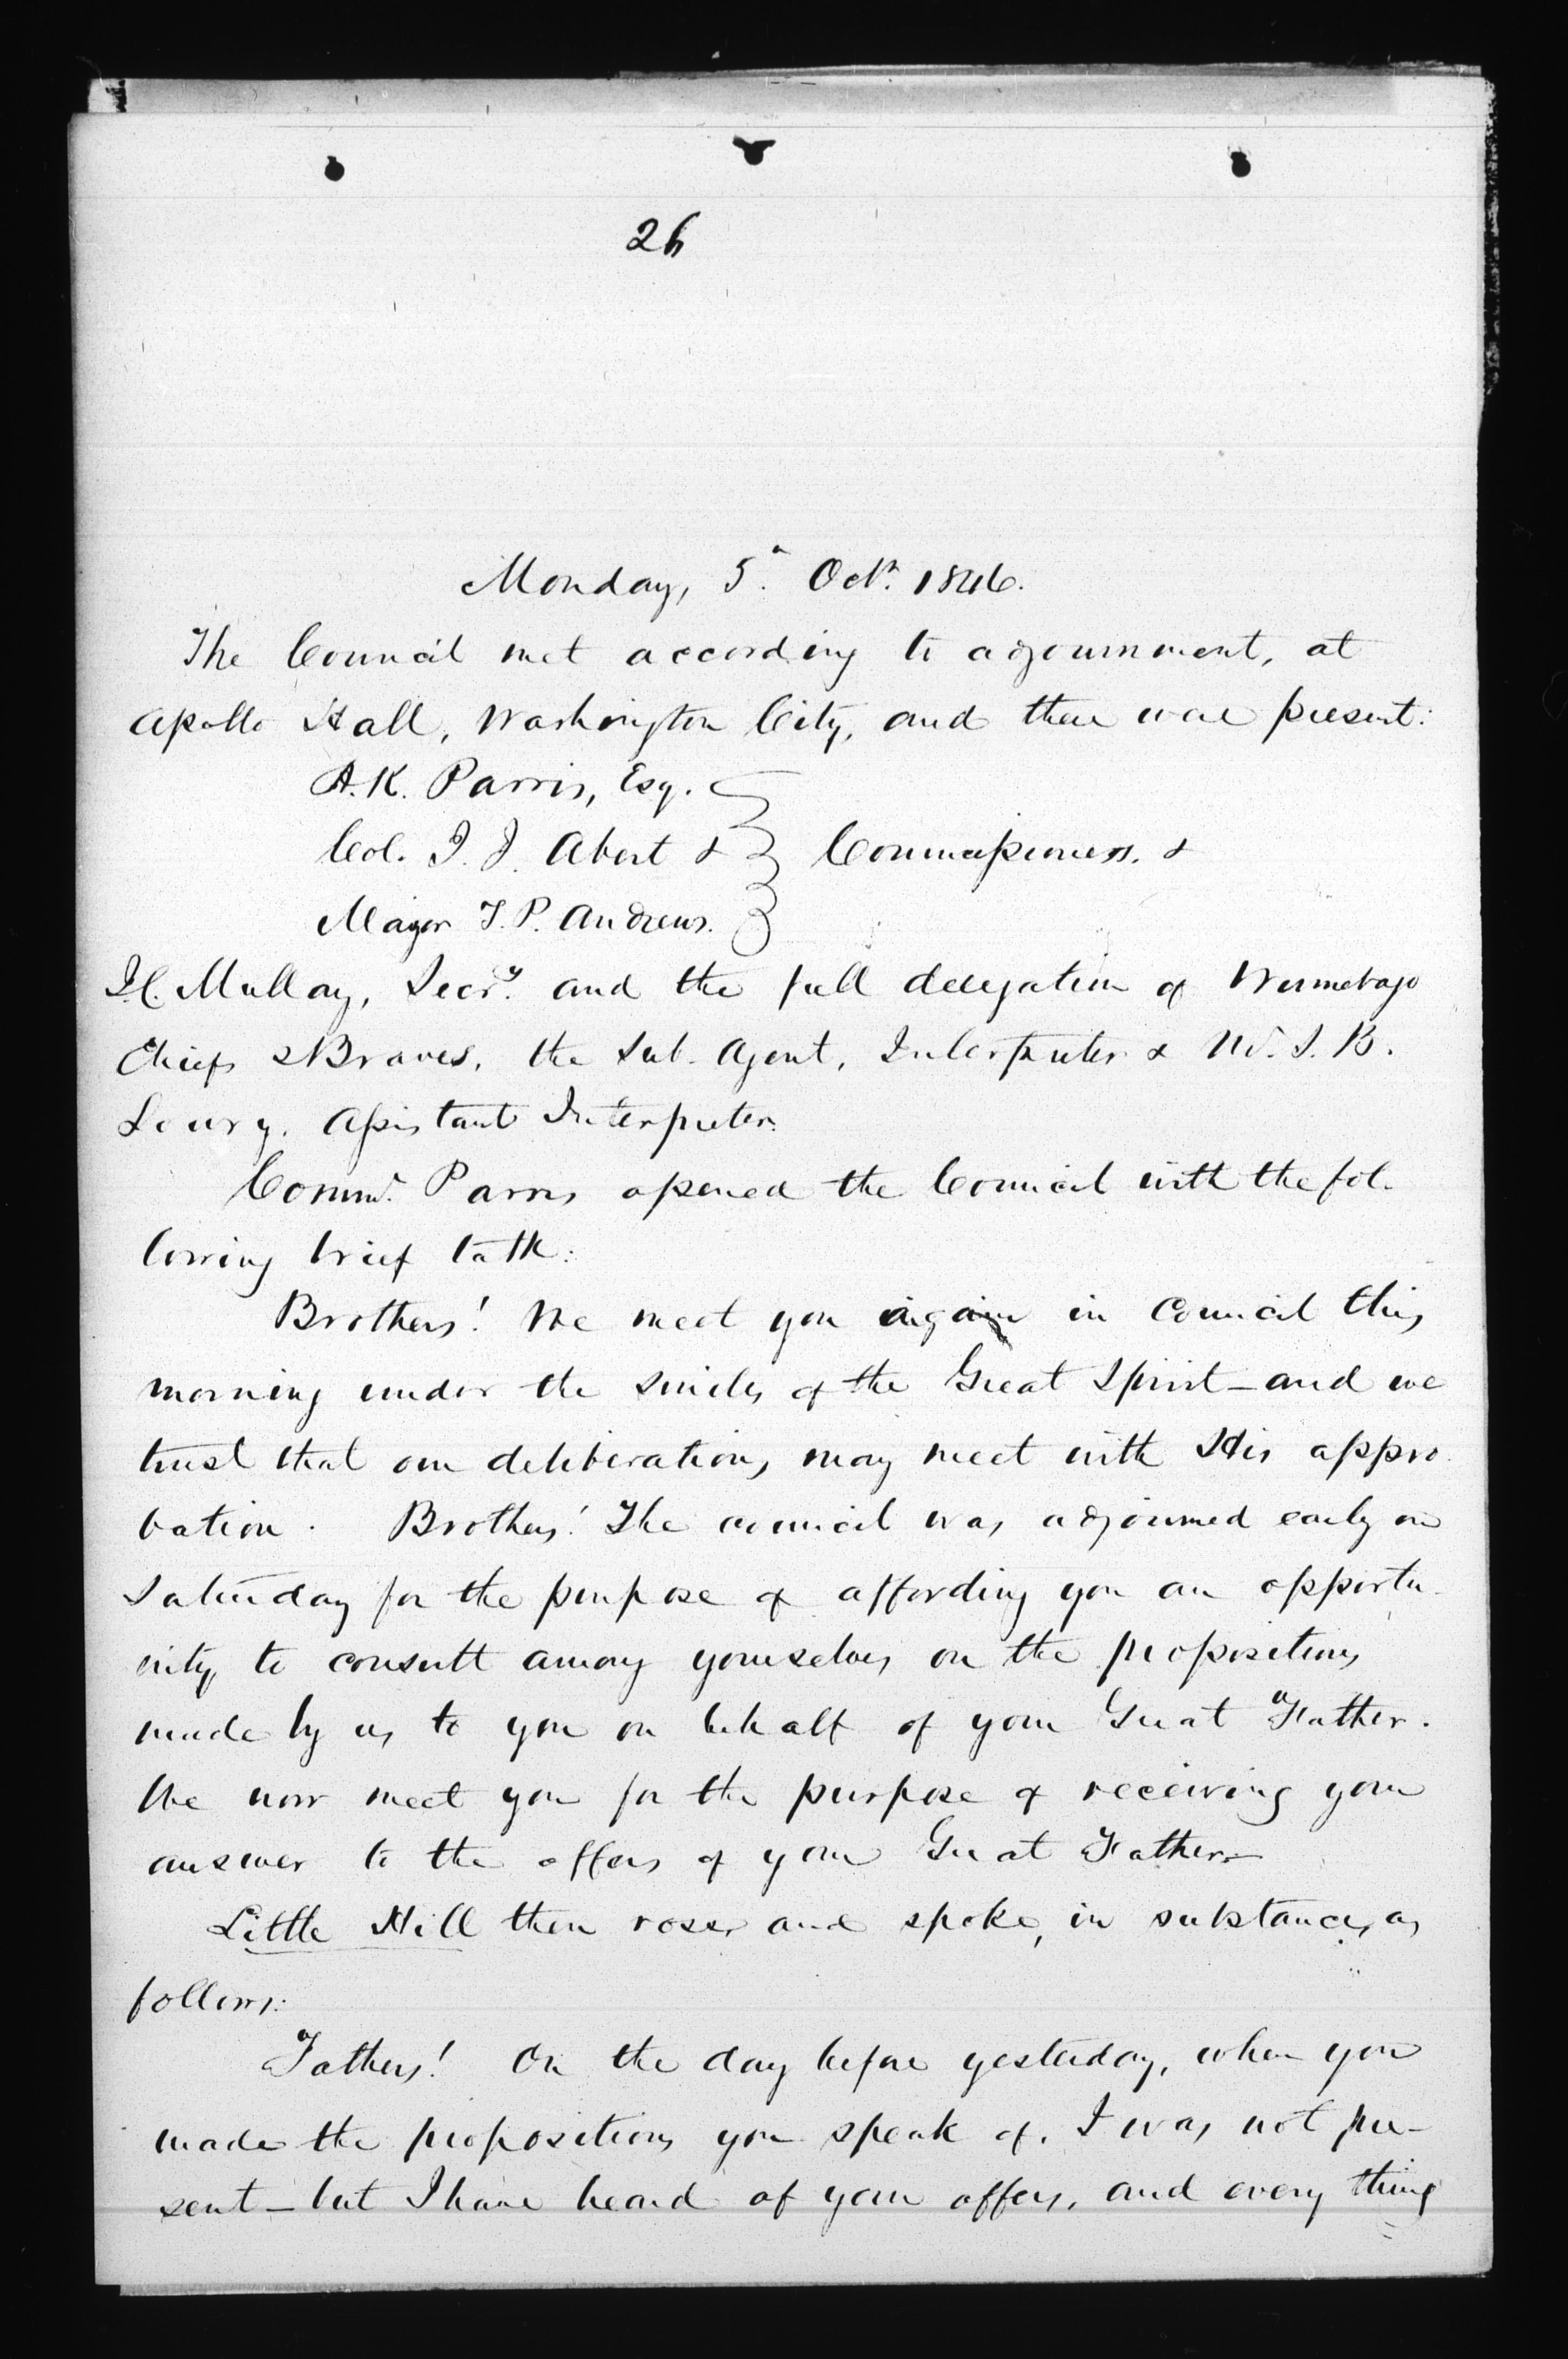 26
Monday, 5th Octr. 1846.
The Council met according to adjournment, at
Apollo Hall, Washington City, and there were present:
A. K. Parris, Esq.
Col. J. J. Abert & } Commissioners. &
Major T. P. Andrews.
J. C. Mullay, Secry. and the full delegation of Winnebago
Chiefs & Braves, the Sub. Agent, Interpreter & W. J. B.
Lowry. Assistant Interpreter.
Commr. Parris opened the Council with the fol-
lowing brief talk:
Brothers! We meet you again in Council this
morning under the smiles of the Great Spirit – and we
trust that our deliberations may meet with His appro-
bation. Brothers! The council was adjourned early on
Saturday for the purpose of affording you an opportu-
nity to consult among yourselves on the propositions
made by us to you on behalf of your Great Father.
We now meet you for the purpose of receiving your
answer to the offers of your Great Father –
Little Hill then rose, and spoke, in substance, as
follows:
Fathers! On the day before yesterday, when you
made the propositions you speak of, I was not pre-
sent – but I have heard of your offers, and every thing